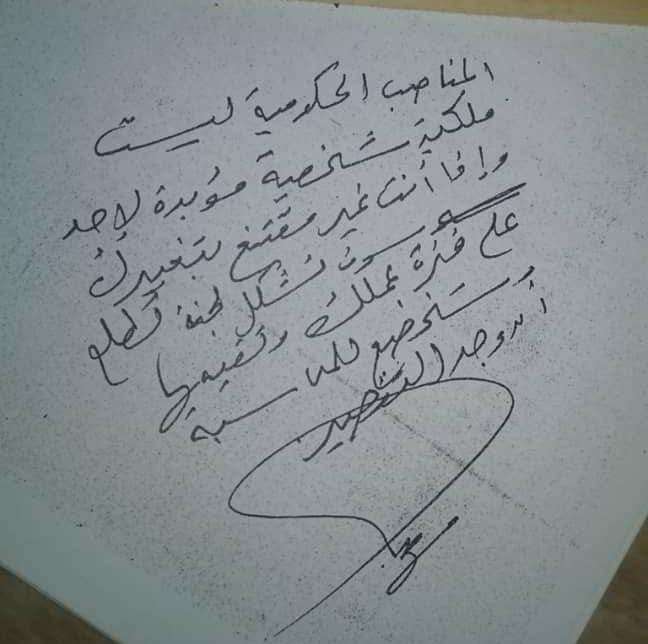 المناصب الحكومية ليست
ملكية شخصية مؤبدة لاحد
وإذا أنت غير مقتنع بتغييرك
سوف نشكل لجنة تطلع
على فترة عملك وتقييمها
وستخضع للمحاسبة
أن وجد التقصير